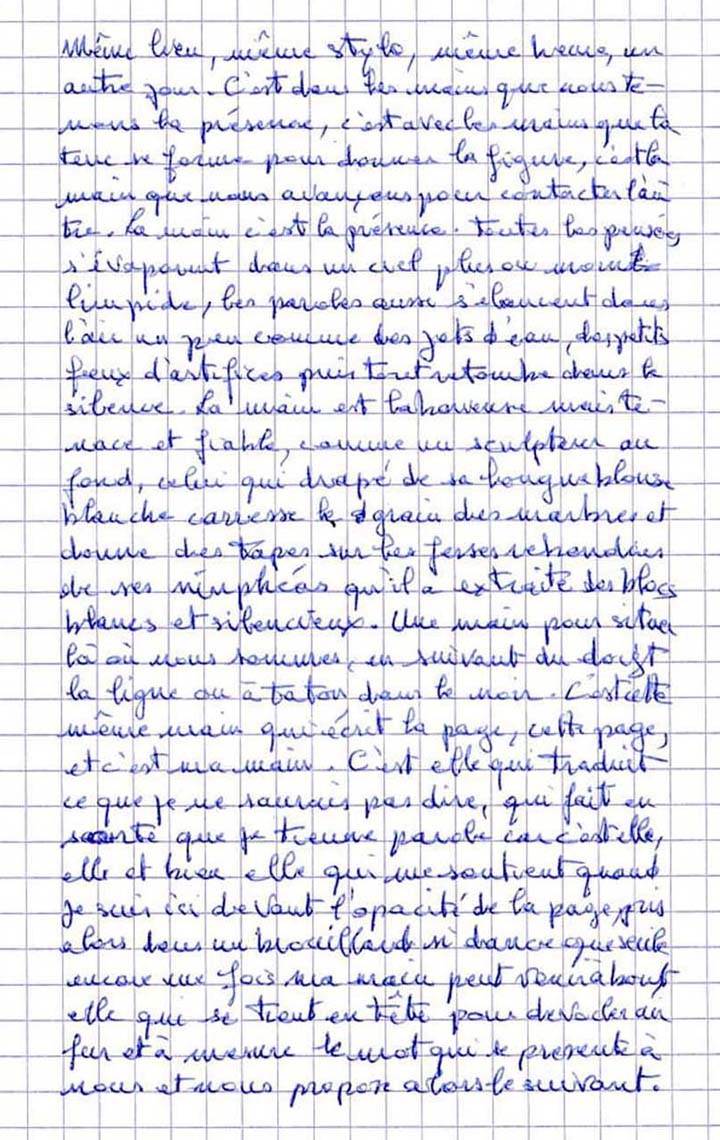 Même lieu, même stylo, même heure, un
autre jour. C'est dans les mains que nous te-
nons la présence, c'est avec les mains que la
terre se forme pour donner la figure, c'est la
main que nous avançons pour contacter l'au
tre. La main c'est la présence. Toutes les pensées
s'évaporent dans un ciel plus ou moins
limpide, les paroles aussi s'élancent dans
l'air un peu comme des jets d'eau, des petits
feux d'artifices puis tout retombe dans le
silence. La main est laborieuse mais te-
nace et fiable, comme un sculpteur au
fond, celui qui drapé de sa longue blouse
blanche carresse le grain des marbres et
donne des tapes sur les fesses rebondies
de ses nimphéas qu'il a extraite des blocs
blancs et silencieux. Une main pour situer
là où nous sommes, en suivant du doigt
la ligne ou à taton dans le noir. C'est cette
même main qui écrit la page, cette page,
et c'est ma main. C'est elle qui traduit
ce que je ne saurais pas dire, qui fait en
sorte que je tienne parole car c'est elle,
elle et bien elle qui me soutient quand
je suis ici devant l'opacité de la page, pris
alors dans un brouillard si dance que seule
encore une fois ma main peut venir à bout
elle qui se tient en tête pour devocler au
fur et à mesure le mot qui se présente à
nous et nous propose alors le suivant.